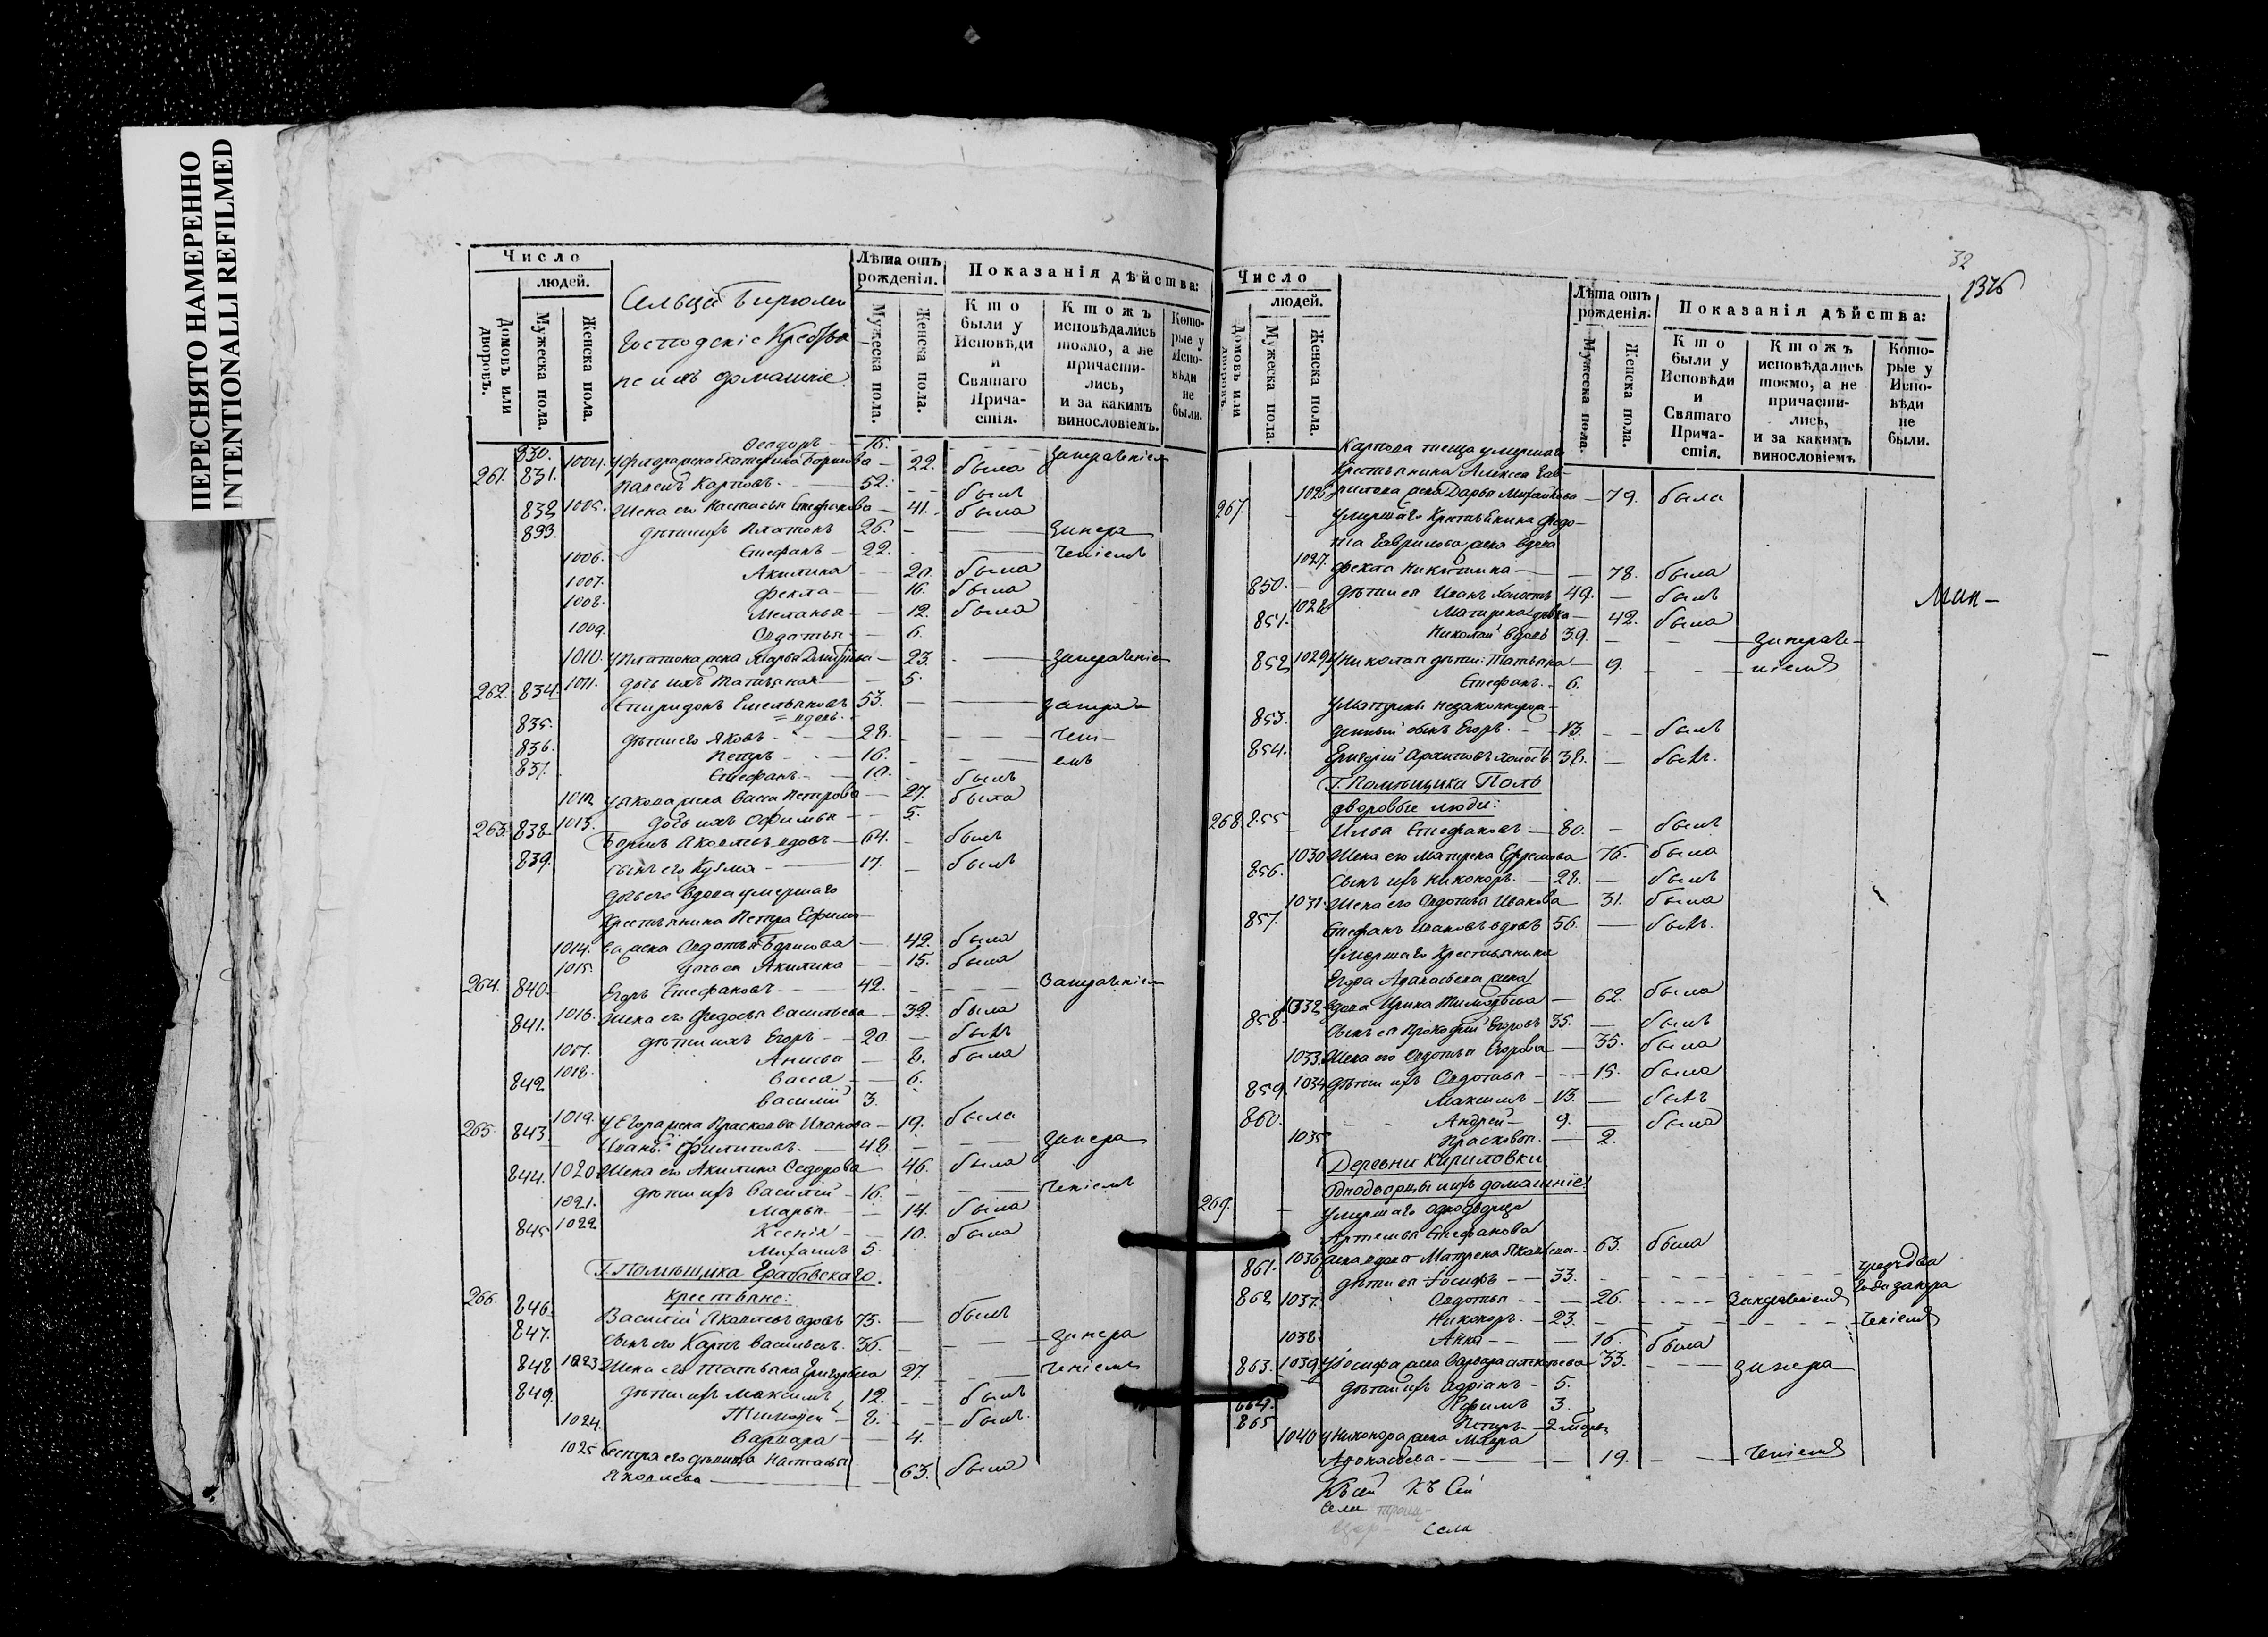 ПЕРЕСНЯТО НАМЕРЕННО
INTENTIONALLI REFILMED
Число
людей.
Домовъ или дворовъ.
Мужеска пола.
Женска пола.
Лѣта отъ рожденія.
Мужеска пола.
Женска пола.
Показанія дѣйства:
Кто были у Исповѣди и Святаго Причастія.
Ктожъ исповѣдались токмо, а не причастились, и за какимъ винословіемъ.
Которые у Исповѣди не были.
Господскіе Крестья
не и ихъ домашніе
830. Ѳеодоръ 16.
1004. у Федора жена Екатерина Борисова 22. была
261. 831. Павелъ Карповъ 52. былъ
1005. Жена его Настасья Стефанова 41. была
832 дѣти ихъ Платонъ 26. занера
833. Стефанъ 22. ченіемъ
1006. Акилина 20. была
1007. Фекла 16. была
1008. Меланья 12. была
1009. Овдотья 6.
1010. у Платона жена Марья 23.
1011. дочь ихъ Татьяна 5.
262. 834. Спиридонъ Емельяновъ 53.
вдовъ
835. дѣти его Яковъ 28.
836. Петръ 16.
837. Стефанъ 10. былъ
1012 у Якова жена Васса Петрова 27. была
1013. дочь ихъ Офимья 5.
263. 838. Борисъ Яковлевъ вдовъ 64. былъ
839. сынъ его Кузма 17. былъ
дочь его вдова умершаго
Крестьянина Петра Ефимо
1014. ва жена Овдотья Борисова 42. была
1015. дочь ея Акилина 15. была
264. 840. Егоръ Стефановъ 42.
1016. Жена его Федосья Васильева 32. была
841. дѣти ихъ Егоръ 20 былъ
1017. Анисья 8. была
1018. Васса 6.
842 Василий 3.
1019. у Егора жена Прасковья Иванова 19. была
265. 843. Иванъ Филиповъ 48. занера
1020. Жена его Акилина Седорова 46. была
844. дѣти ихъ Василій 16. ченіемъ
1021. Марья 14. была
1022 Ксенія 10. была
845 Михаилъ 5.
Г. Помѣщика Грабовскаго.
Крестьяне:
266. 846. Василій Яковлевъ вдовъ 73. былъ
847. сынъ его Карпъ Васильевъ 36. занера
1023 Жена его Татьяна Григорьева 27. ченіемъ
848 дѣти ихъ Максимъ 12. былъ
849. Тимофей 8. былъ
1024. Варвара 4.
1025 Сестра его дѣвица Настасья
Яковлева 63. была
32
Число
людей.
Домовъ или дворовъ.
Мужеска пола.
Женска пола.
Лѣта отъ рожденія.
Мужеска пола.
Женска пола.
Показанія дѣйства:
Кто были у Исповѣди и Святаго Причастія.
Ктожъ исповѣдались токмо, а не причастились, и за какимъ винословіемъ
Которые у Исповѣди не были.
Карпова теща умершаго
Крестьянина Алексея Гав
1026 рилова жена Дарья Михайлова 79. была
267. умершаго Крестьянина Федо
та Гаврилова жена вдова
1027. Фекла Никитина 78. была
850. дѣти ея Иванъ холостъ 49. былъ
1028 Матрена дѣвка 42. была
851. Николай вдовъ 39.
1029 у Николая дѣти: Татьяна 9.
852 Стефанъ 6.
у Матрены незаконнорож
853. денный сынъ Егоръ 13. былъ
854. Григорій Архиповъ холостъ 38. былъ.
дворовые люди:
268. 855 Илья Стефановъ 80. былъ
1030 Жена его Матрена Ефремова 76. была
856. Сынъ ихъ Никоноръ 28. былъ
1031 Жена его Овдотья Иванова 31. была
857. Стефанъ Ивановъ вдовъ 56. былъ.
умершаго Крестьянина
Егора Афанасьева жена
1032 вдова Ирина Тимофѣева 62. была
858. Сынъ ея Прокофий Егоровъ 35. былъ
1033 Жена его Овдотья Егорова 35. была
1034 дѣти ихъ Овдотья 15. была
859. Максимъ 13. былъ
860. Андрей 9. была
1035 Прасковья 2.
Деревни Кириловки
Однодворцы ихъ домашніе
269. умершаго однодворца
Артемья Стефанова
1036 жена вдова Матрена Яковлева 63. была
861. дѣти ея Іосифъ 33. чрезъ два
1037. Овдотья 26.
862 Никоноръ 23. ченіемъ
1038. Анна 16. была
1039. у Іосифа жена Варвара 33. занера
863. дѣти ихъ Адріанъ 5.
864. Ефимъ 3.
865 Петръ 2
1040 у Никонора жена Мавра
Афонасьева 19. ченіемъ
Къ сей
Къ Сей
Села
Села